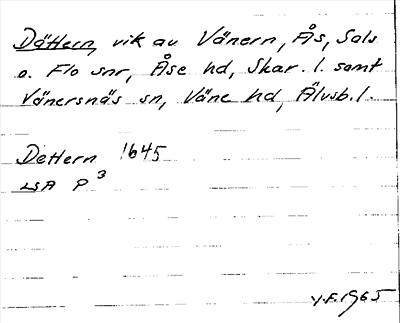 Dättern, vik av Vänern, Ås, Sals
o. Flo snr, Åse hd, Skar. l. samt
Vänersnäs sn, Väne hd, Älvsb. l.
Dettern 1645
LSA P3
V.F. 1965